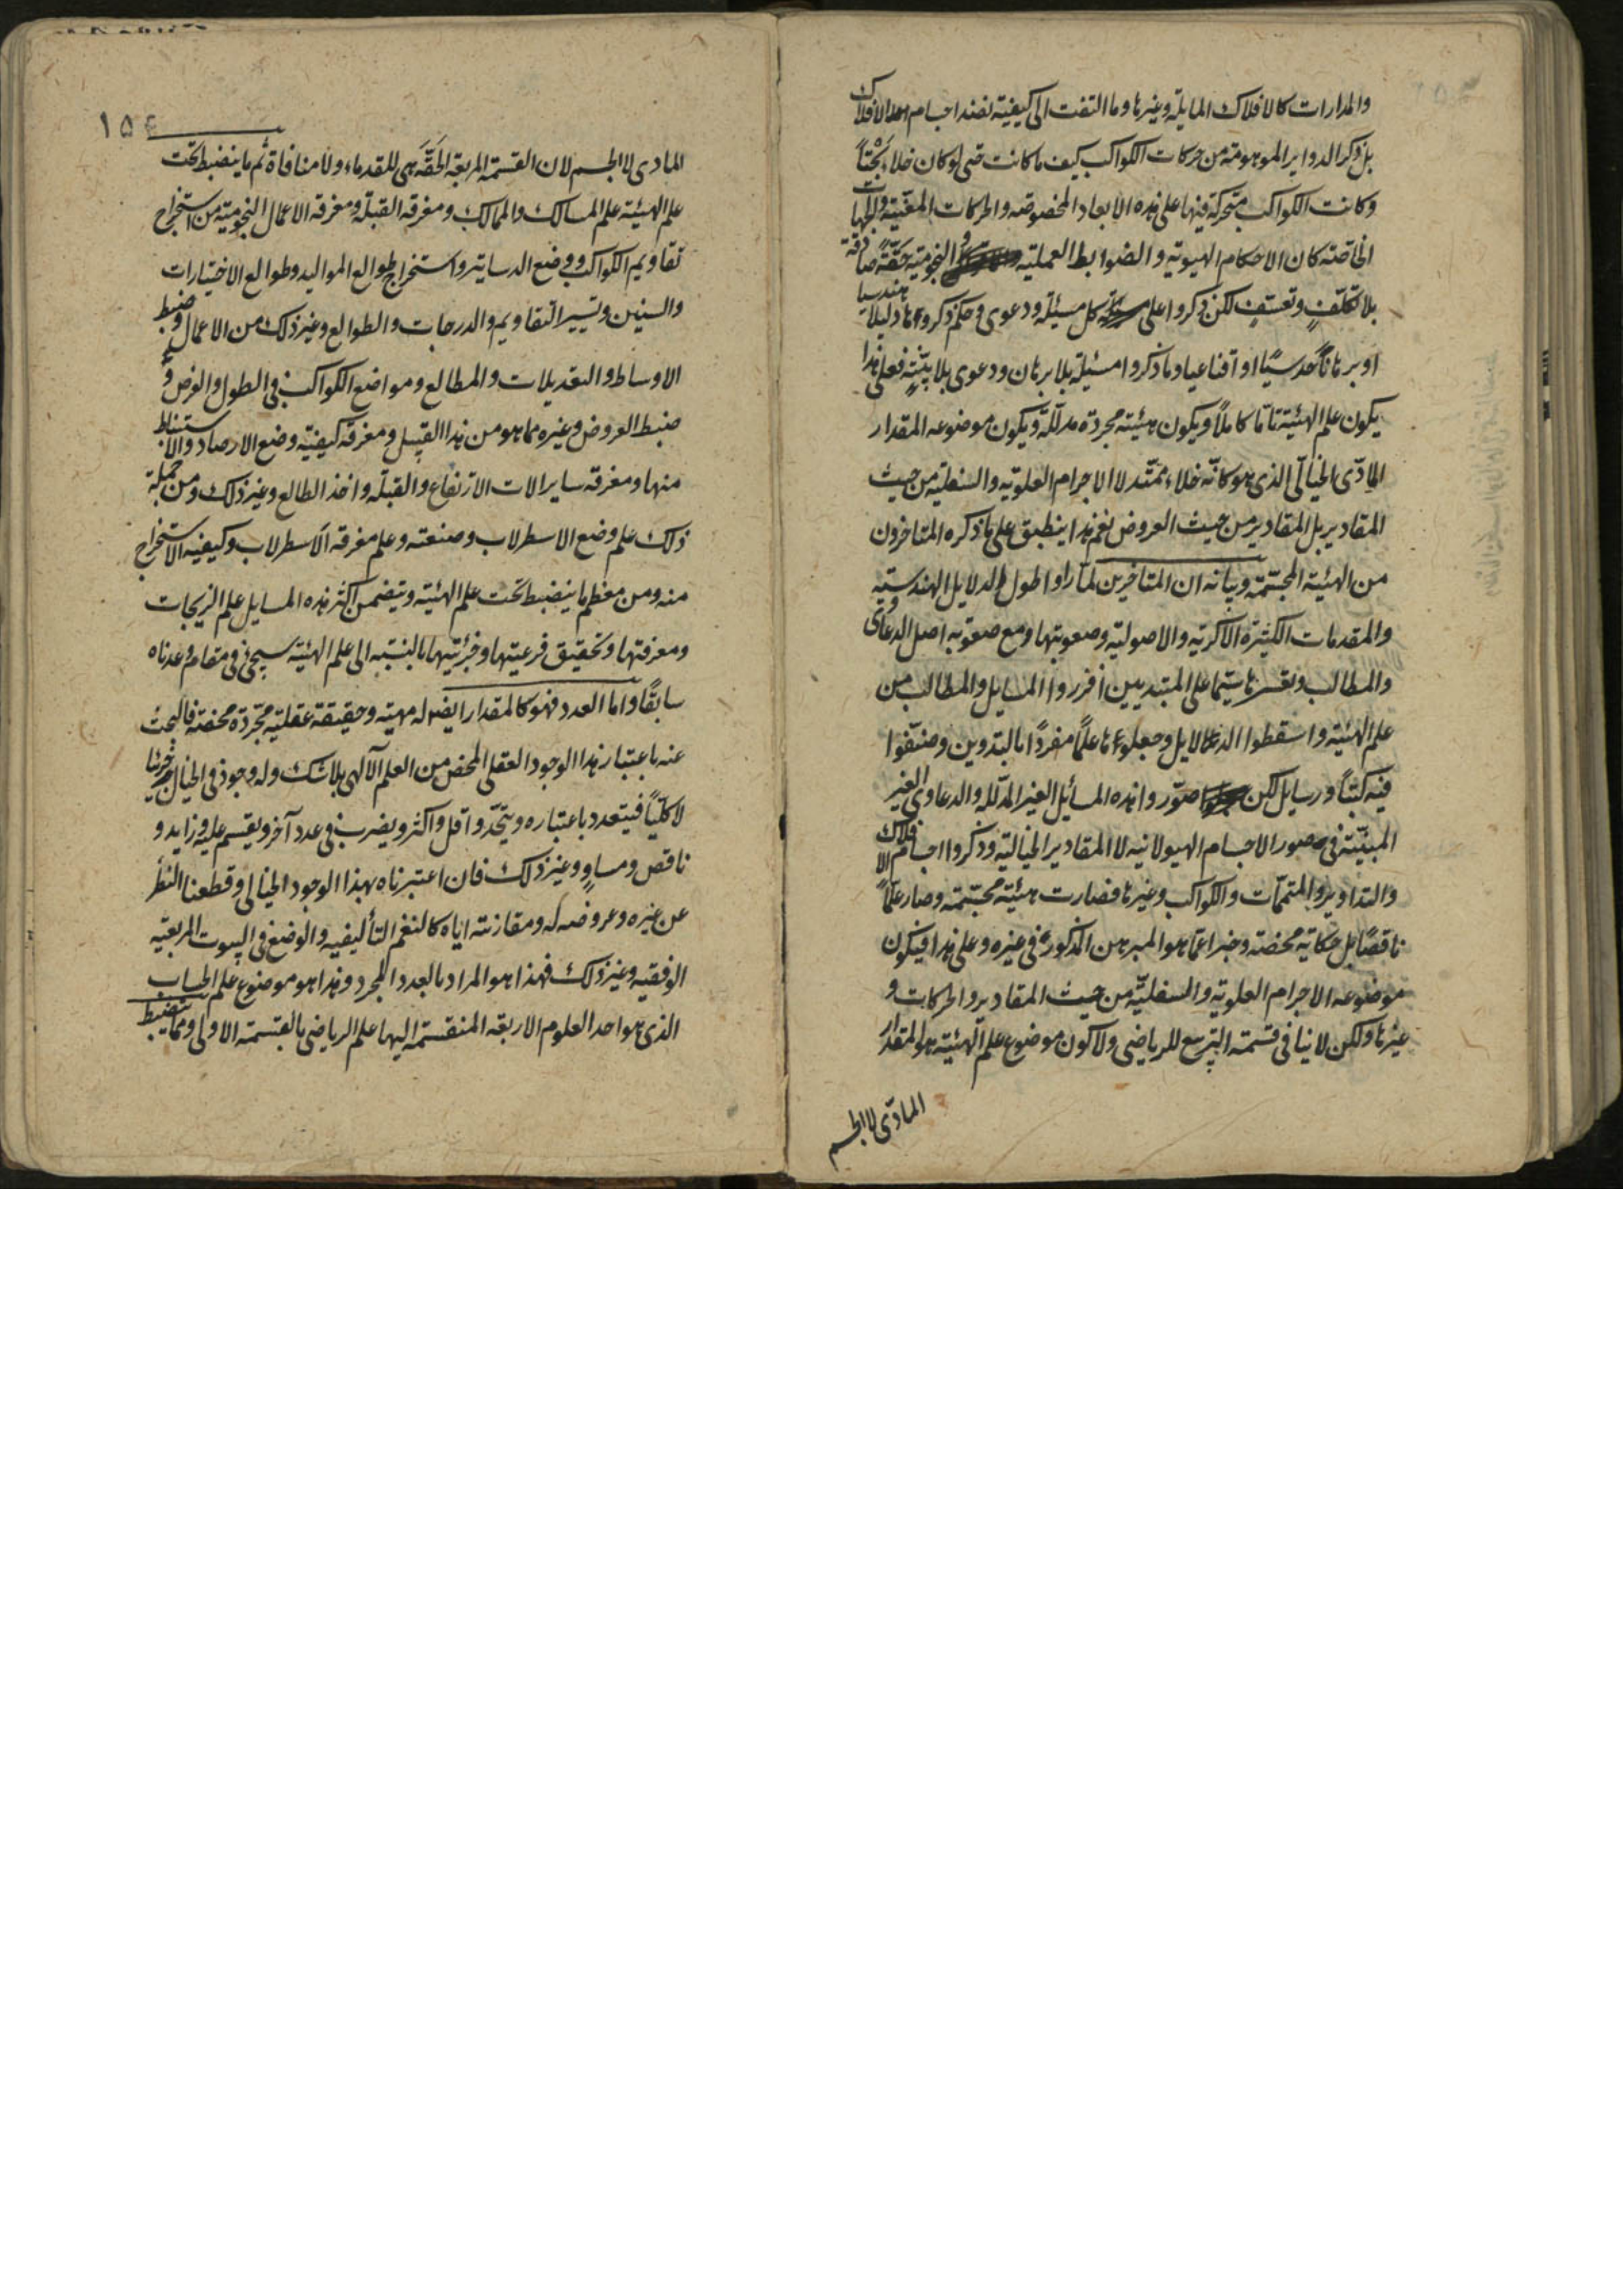 والمدارات كالافلاك المايلة وغيرها وما التفت الى كيفية نضد اجسام هذه الافلاك
بل ذكر الدواير الموهومة من حركات الكواكب كيف ما كانت حتى لو كان خلاء بحتاً
وكانت الكواكب متحركة فيها على هذه الابعاد المخصوصه والحركات المعينة والجهات
الخاصة كان الاحكام الهيوية والضوابط العملية والنجومية حقّة صادقة
بلا تكلّفٍ وتعسّفٍ لكن ذكروا على كل مسئلة ودعوى وحكم ذكروها دليلا هندسيا
او برهاناً حدسيًا او اقناعيا وما ذكروا مسئيلة بلا برهان ودعوى بلا بيّنةٍ فعلى هذا
يكون علم الهيئة تامّا كاملاً ويكون هيئة مجردة مدلّلة ويكون موضوعه المقدار
المادّى الخيالّى الذى هو كانّه خلاء ممتّد لا الاجرام العلويّه والسفلية من حيث
المقادير بل المقادير من حيث العروض نعم هذا ينطبق على ما ذكره المتاخرون
من الهيئة المجسّمة وبيانه ان المتاخرين لمّا راوا طول الدلايل الهندسيّه
والمقدمات الكثيرة الاكريّه والاصولية وصعوبتها ومع صعوبه اصل الدعاوى
والمطالب وتعسرها سيّما على المبتديين افرزوا المسايل والمطالب من
علم الهيئة واسقطوا الدلايل وجعلوها علمًا مفردًا بالتدوين وصنّفوا
فيه كتباً ورسايل لكن صوّروا هذه المسائل الغير المدلّله والدعاوى الغير
المبيّنة فى صور الاجسام الهيولانيه لا المقادير الخيالية وذكروا اجسام الافلاك
والتداوير والمتممّات والكواكب وغيرها فصارت هيئية مجسّمة وصار علمًا
ناقصًا بل حكاية محضة وخبرا عمّا هو المبرهن المذكورة فى غيره وعلى هذا فيكون
موضوعه الاجرام العلوية والسفليّه من حيث المقادير والحركات و
غيرها ولكن لا ينافى قسمة التربيع للرياضى ولا كون موضوع علم الهيئية هو المقدار
المادّى لا الجسم
١٥٤
المادى لا الجسم لان القسمة المربعة الحَقَّة هى للقدماء ولا منافاة ثم ما ينضبط تحت
علم الهيئة علم المسالك والممالك ومعرفه القبلة ومعرفه الاعمال النجومية من استخراج
تقاويم الكواكب ووضع الدساتير واستخراج طوالع المواليد وطوالع الاختيارات
والسنين وتسيير التقاويم والدرجات والطوالع وغير ذلك من الاعمال وضبط
الاوساط والتعديلات والمطالع ومواضع الكواكب فى الطول والعرض و
ضبط العروض وغيره مما هو من هذا القبيل ومعرفة كيفيّه وضع الارصاد والاستنباط
منها ومعرفة ساير الات الارتفاع والقبلة واخذ الطالع وغير ذلك ومن جملة
ذلك علم وضع الاسطرلاب وصنعته وعلم معرفه الاسطرلاب وكيفيه الاستخراج
منه ومن معظم ما ينضبط تحت علم الهيئية ويتضمن اكثر هذه المسايل علم الزيجات
ومعرفتها وتحقيق فرعيتها وجزئيتها بالنسبه الى علم الهيئية سيجئ فى مقام وعدناه
سابقًا واما العدد فهو كالمقدار ايضا له مهيّة وحقيقة عقليّه مجرّدة محضة فالبحث
عنه باعتبار هذا الوجود العقلى المحض من العلم الآلهى بلا شك وله وجود فى الخيال جزئيا
لا كليًّا فيتعدد باعتباره ويتحّد واقل واكثر ويضرب فى عدد آخر ويقسم عليه وزايد و
ناقص ومساوٍ وغير ذلك فان اعتبرناه بهذا الوجود الخيالى وقطعنا النظر
عن غيره وعروضه له ومقارنته اياه كالنغم التأليفيه والوضع فى البيوت المربعيه
الوفقيه وغير ذلك فهذا هو المراد بالعدد المجرد وهذا هو موضوع علم الحساب
الذى هو احد العلوم الاربعة المنقسمة اليها علم الرياضى بالقسمة الاولى ومما ينضبط